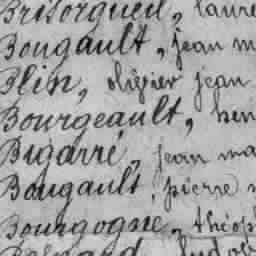 Brisorgueil, laure
Bougault, jean m
Blin, olivier jean
Bourgeault, hen
Bigarré, jean ma
Bougault, pierre
Bourgogne, théop
Besnard, ludov